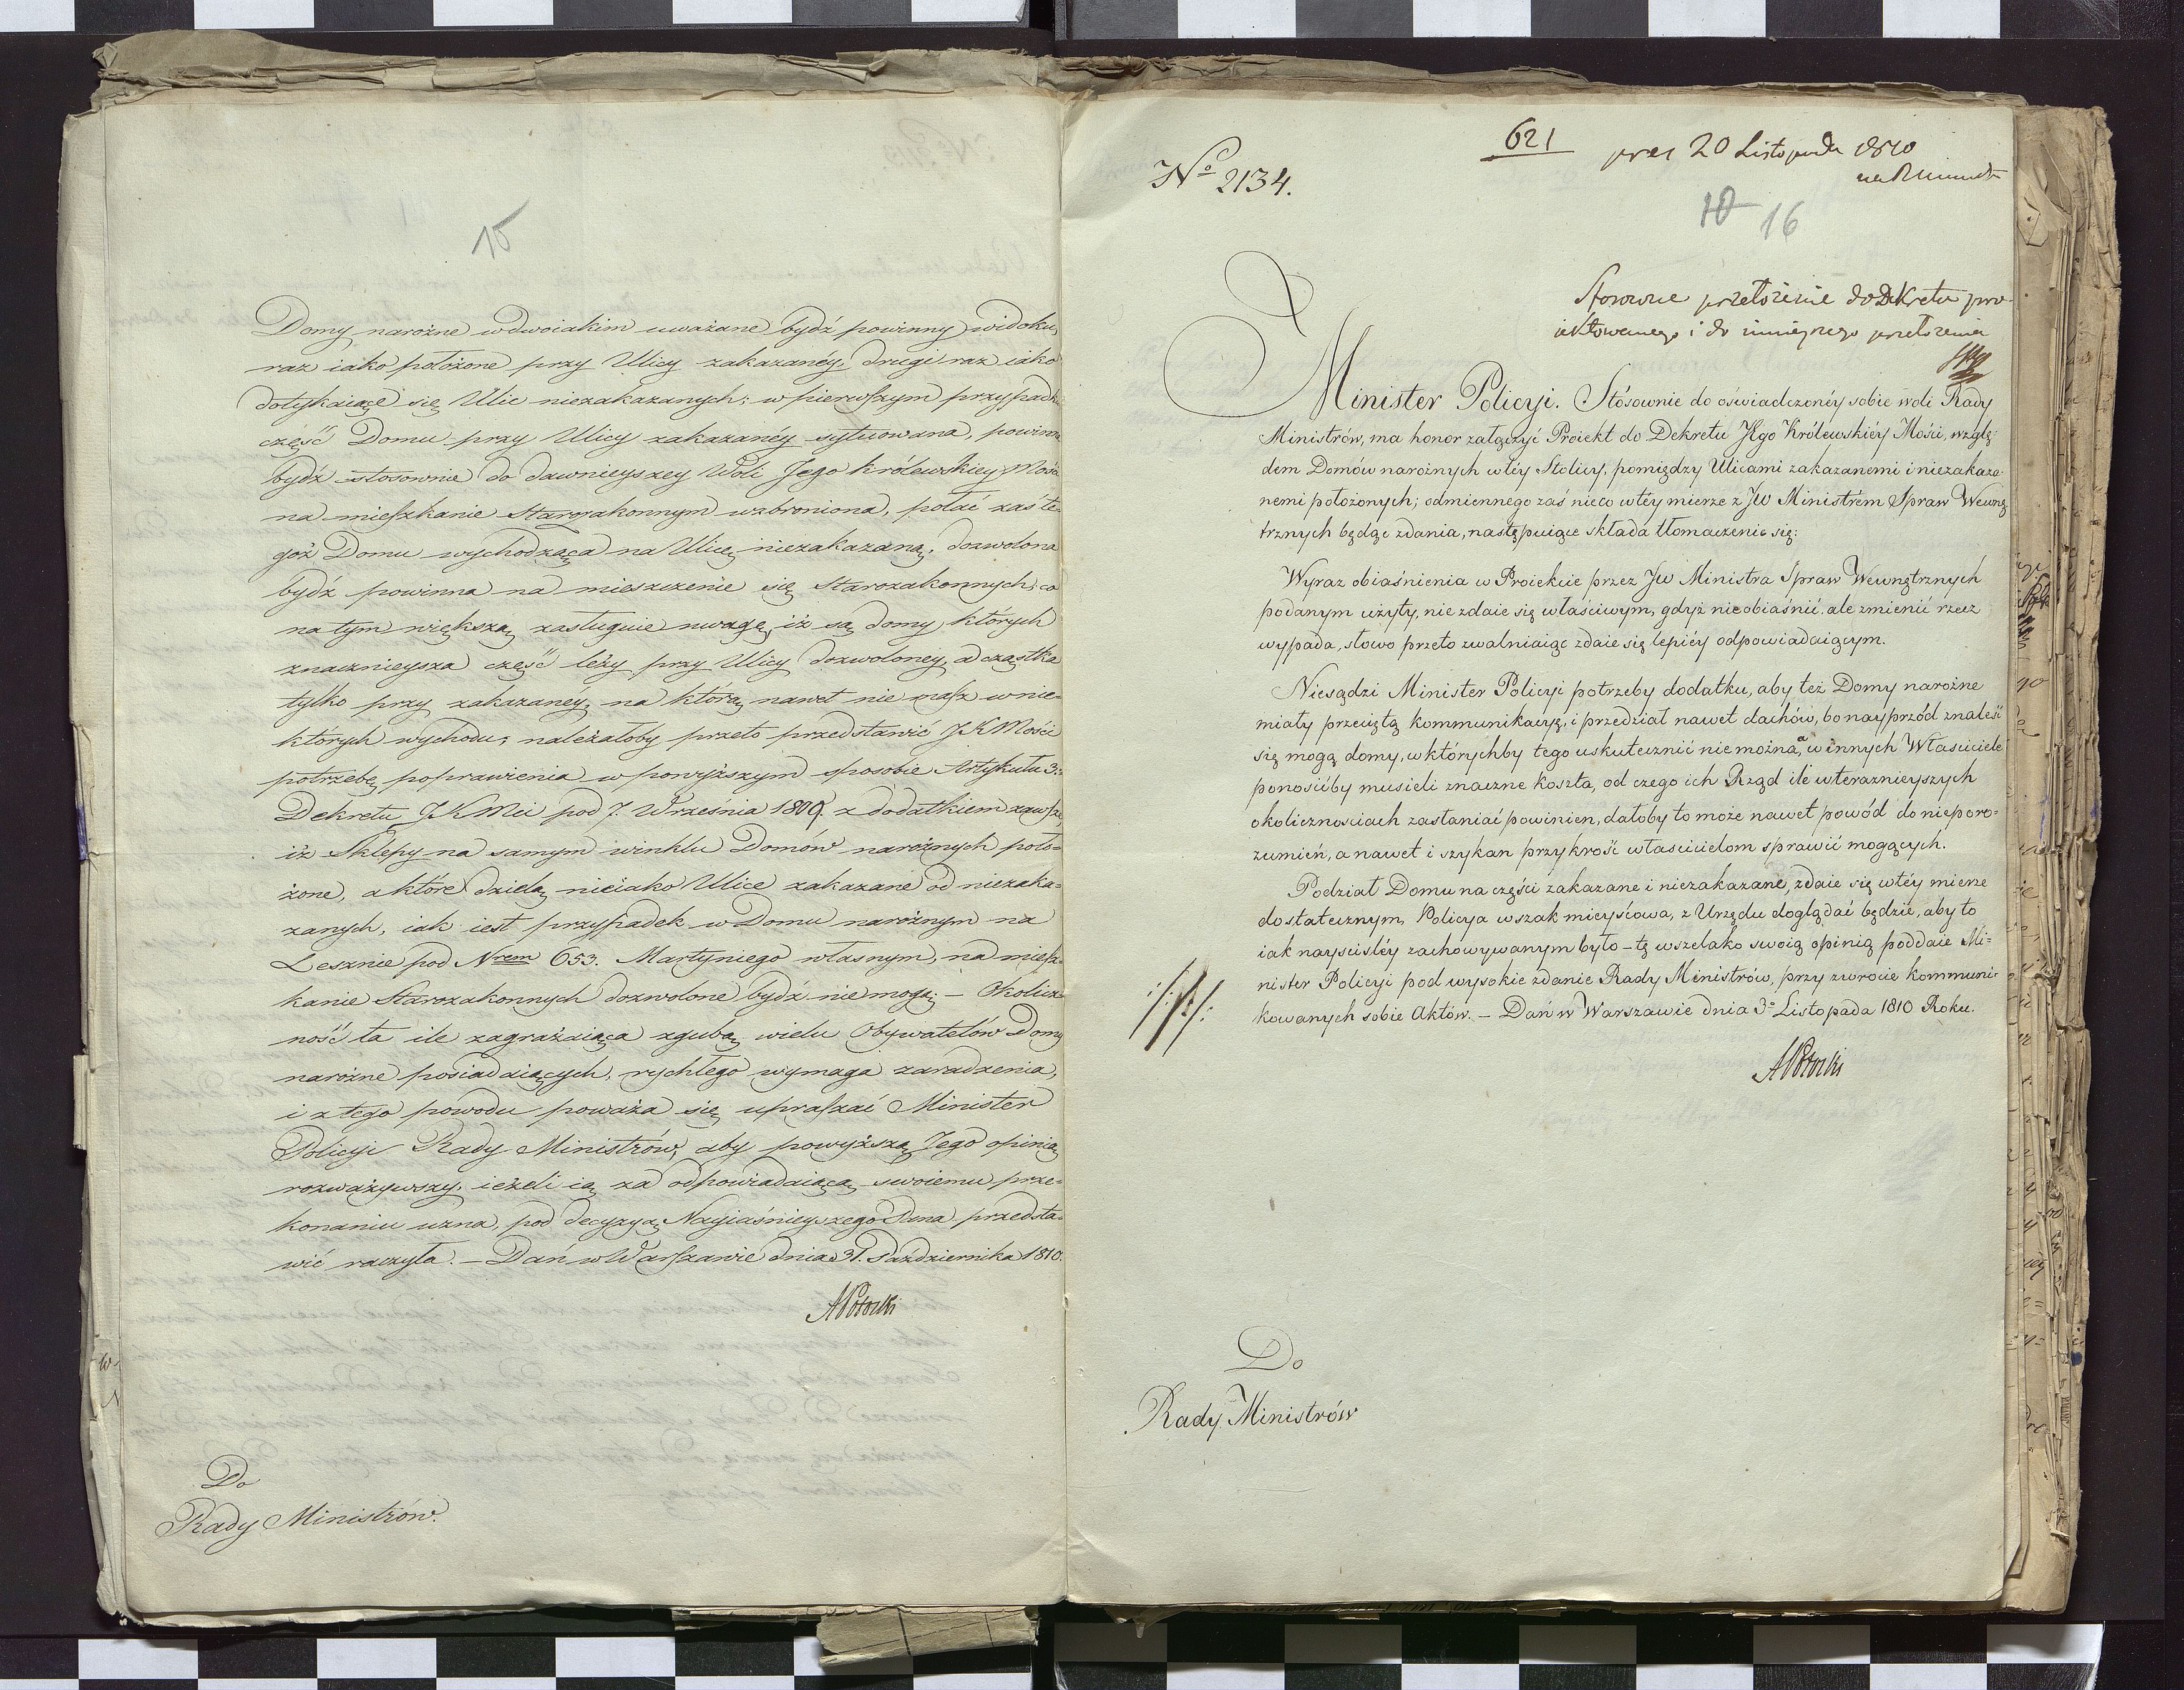 15
Domy narożne wdwoiakim uważane bydź powinny widoku,
raz iako położone przy Ulicy zakazanéy, drugi raz iako
dotykaiące się Ulic niezakazanych; w pierwszym przypadku
część Domu przy Ulicy zakazanéy sytuowana, powinna
bydź stosownie do dawnieyszey Woli Jego Królewskiey Mości
na mieszkanie Starozakonnym wzbroniona, połać zaś te-
goż Domu wychodząca na Ulicę niezakazaną, dozwolona
bydź powinna na mieszczenie się Starozakonnych; co
na tym większą zasługuie uwagę, iż są domy, których
znacznieysza część leży przy Ulicy dozwoloney, a cząstka
tylko przy zakazanéy, na którą nawet nie masz w nie-
których wychodu; należałoby przeto przedstawić JKMości
potrzebę poprawienia w powyższym sposobie Artykułu 3:
Dekretu JKMci pod 7. Września 1809. z dodatkiem zawsze,
iż Sklepy na samym winklu Domów narożnych poło-
żone, a które dzielą nieiako Ulice zakazane od niezaka-
zanych, iak iest przypadek w Domu narożnym na
Lesznie pod Nrem 653. Martyniego własnym, na miesz-
kanie Starozakonnych dozwolone bydź nie mogą; – Okolicz-
ność ta ile zagrażaiąca zgubą wielu Obywatelów Domy
narożne posiadaiących, rychłego wymaga zaradzenia,
i z tego powodu poważa się upraszać Minister
Policyi Rady Ministrów, aby powyższą Jego opinią
rozważywszy, ieżeli ią za odpowiadaiącą swoiemu prze-
konaniu uzna, pod decyzyą Nayiaśnieyszego Pana przedsta-
wić raczyła. – Dan w Warszawie dnia 31. Października 1810.
APotocki
Do
Rady Ministrów.
621
No 2134.
prez 20 Listopada 1810
10 16
Stosowne przełożenie do Dekretu pro-
iektowanego i do ninieyszego przełożenia
Minister Policyi. Stósownie do oświadczonéy sobie woli Rady
Ministrów, ma honor załączyć Proiekt do Dekretu JEgo Królewskiéy Mości, wzglę-
dem Domów narożnych w téy Stolicy, pomiędzy Ulicami zakazanemi i niezakaza-
nemi położonych; odmiennego zaś nieco w téy mierze z JW Ministrem Spraw Wewnę-
trznych będąc zdania, następuiące składa tłomaczenie się:
Wyraz obiaśnienia w Proiekcie przez JW Ministra Spraw Wewnętrznych
podanym użyty, nie zdaie się właściwym, gdyż nie obiaśnić, ale zmienić rzecz
wypada, słowo przeto zwalniaiąc zdaie się lepiéy odpowiadaiącym.
Niesądzi Minister Policyi potrzeby dodatku, aby też Domy narożne
miały przeciętą kommunikacyą, i przedział nawet dachów, bo nayprzód znaleść
się mogą domy, w którychby tego uskutecznić nie można, a w innych Właściciele
ponosićby musieli znaczne koszta, od czego ich Rząd ile w teraznieyszych
okolicznościach zasłaniać powinien, dałoby to może nawet powód do nieporo-
zumień, a nawet i szykan przykrość właścicielom sprawić mogących.
Podział Domu na części zakazane i niezakazane, zdaie się w téy mierze
dostatecznym, Policya wszak mieyscowa, z Urzędu doglądać będzie, aby to
iak nayściśléy zachowywanym było – tę wszelako swoią opinią poddaie Mi-
nister Policyi pod wysokie zdanie Rady Ministrów, przy zwrocie kommuni-
kowanych sobie Aktów. – Dań w Warszawie dnia 3o Listopada 1810 Roku.
APotocki
Do
Rady Ministrów